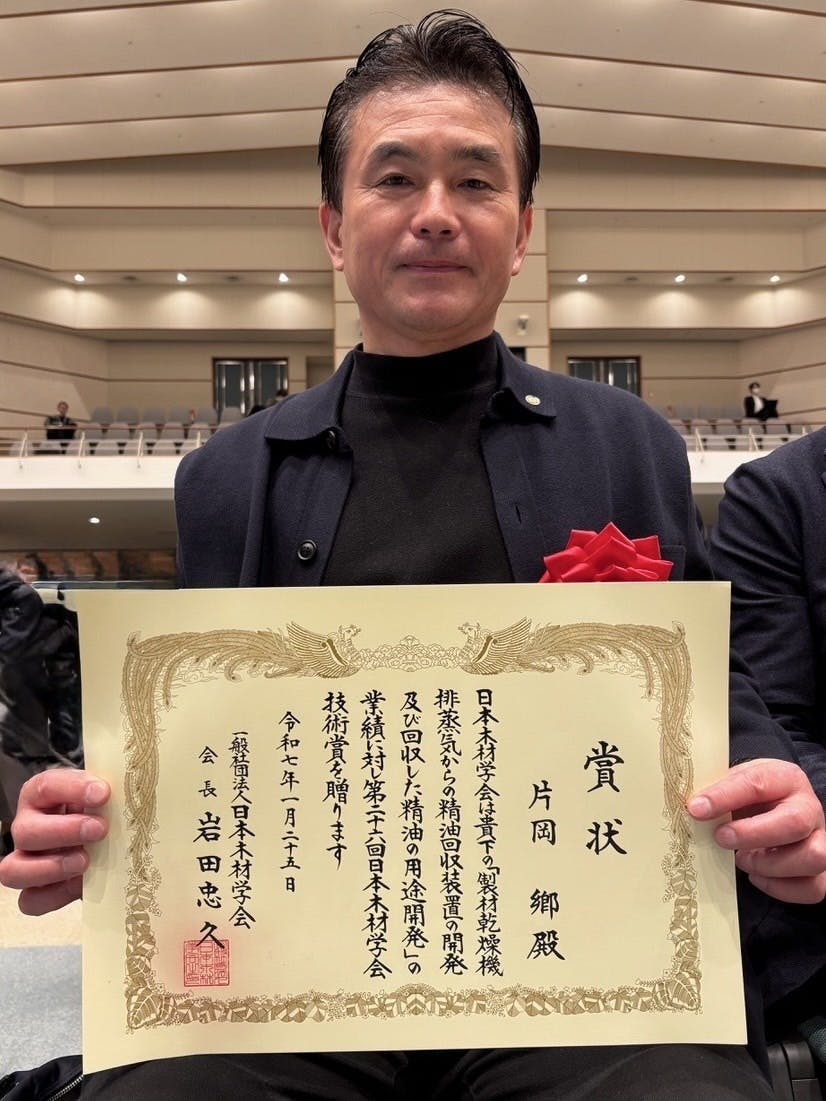 賞状
片岡 郷殿
日本木材学会は貴下の「製材乾燥機
排蒸気からの精油回収装置の開発
及び回収した精油の用途開発」の
業績に対し第二十六回日本木材学会
技術賞を贈ります
令和七年一月二十五日
一般社団法人日本木材学会
会長 岩田忠久